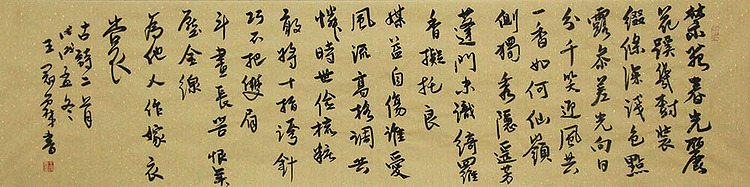 禁苑春光麗
花蹊裝
綴條深淺色點
露參差光向日
分千笑迎風共
一香如何仙嶺
側獨秀隱遥芳
蓬門未識綺羅
香擬托良
媒益自傷誰愛
風流高格調共
憐時世儉梳粧
敢將十指誇針
巧不把雙眉
斗畫長苦恨年
壓金線
為他人作嫁衣
裳
古詩二首
孟冬
王書